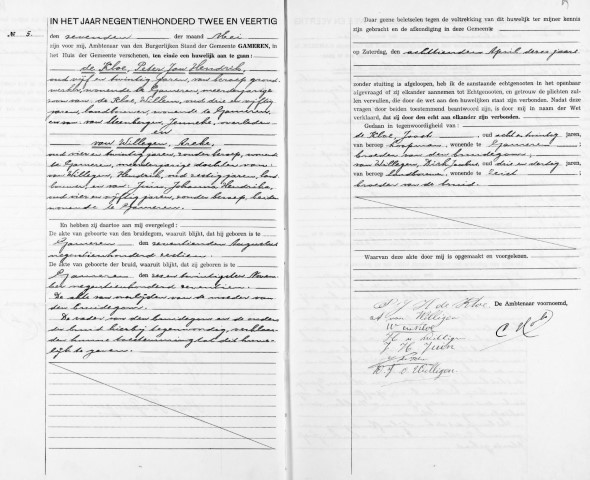 № 5.
IN HET JAAR NEGENTIENHONDERD TWEE EN VEERTIG
den zevenden der maand Mei
zijn voor mij, Ambtenaar van den Burgerlijken Stand der Gemeente GAMEREN, in
het Huis der Gemeente verschenen, ten einde een huwelijk aan te gaan:
de Kloe, Peter Jan Hendrik,
oud vijf en twintig jaren, van beroep grond-
werker, wonende te Gameren, meerderjarige
zoon van: de Kloe, Willem, oud drie en vijftig
jaren, landbouwer, wonende te Gameren,
en van: van Steenbergen, Janneke, overleden
en
van Willigen, Aeke,
oud vier en twintig jaren, zonder beroep, wonen-
de te Gameren, meerderjarige dochter van:
van Willigen, Hendrik, oud zestig jaren, land-
bouwer, en van: Johanna Hendrika,
oud vier en vijftig jaren, zonder beroep, beiden
wonende te Gameren.
En hebben zij daartoe aan mij overgelegd:
De akte van geboorte van den bruidegom, waaruit blijkt, dat hij geboren is te
Gameren den zeventienden Augustus
negentienhonderd zestien.
De akte van geboorte der bruid, waaruit blijkt, dat zij geboren is te
Gameren den zes en twintigsten Novem-
ber negentienhonderd zeventien.
De akte van overlijden van de moeder van
den bruidegom.
De vader van den bruidegom en de ouders
der bruid hierbij tegenwoordig, verklaar-
den hunne toestemming tot dit huwe-
lijk te geven.
Daar geene beletselen tegen de voltrekking van dit huwelijk ter mijner kennis
zijn gebracht en de afkondiging in deze Gemeente
op Zaterdag, den achttienden April dezes jaars
zonder stuiting is afgeloopen, heb ik de aanstaande echtgenooten in het openbaar
afgevraagd of zij elkander aannemen tot Echtgenooten, en getrouw de plichten zul-
len vervullen, die door de wet aan den huwelijken staat zijn verbonden. Nadat deze
vragen door beiden toestemmend beantwoord waren, is door mij in naam der Wet
verklaard, dat zij door den echt aan elkander zijn verbonden.
Gedaan in tegenwoordigheid van:
de Kloe, Joost, oud acht en twintig jaren,
van beroep koopman, wonende te Gameren,
broeder van den bruidegom,
van Willigen, Dirk Jacobus, oud drie en dertig jaren,
van beroep landbouwer, wonende te Zeist,
broeder van de bruid.
Waarvan deze akte door mij is opgemaakt en voorgelezen.
De Ambtenaar voornoemd,
P. J. H. de Kloe.
A van Willigen
W de Kloe
H v. Willigen
J. H.
D. J. v. Willigen.